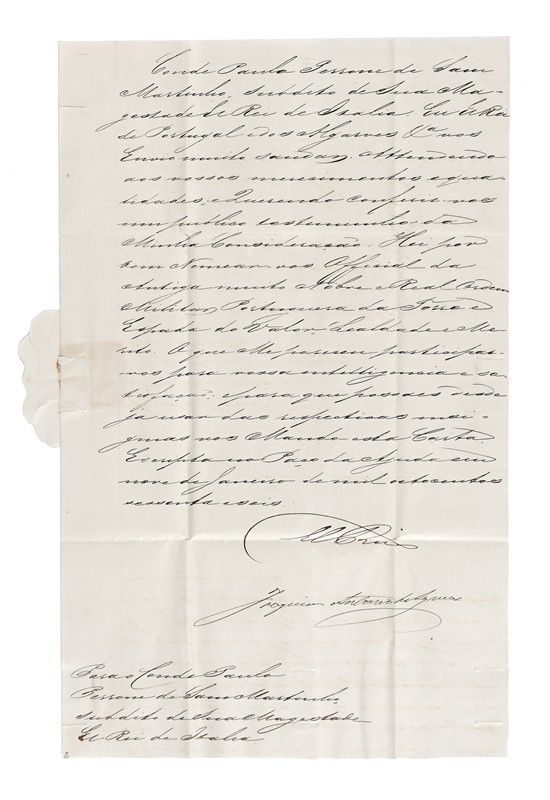 Conde Paulo Perrone de Sam
Martinho, subdito de Sua Ma-
gestade El Rei de Italia. Eu El Rei
de Portugal e dos Algarves &.ª vos
Envio muito saudar. Attendendo
aos vossos merecimentos e qua-
lidades, e Querendo conferir-vos
um publico testemunho da
Minha Consideração: Hei por
bem Nomear-vos Official da
Antiga muito Nobre e Real Ordem
Militar Portugueza da Torre e
Espada do Valor, Lealdade e Me-
rito. O que Me pareceu participar-
vos para vossa intelligencia e sa-
tisfação, e para que possaes desde
já usar das respectivas insi-
gnias vos Mando esta Carta.
Escripta no Paço da Ajuda em
nove de Janeiro de mil oitocentos
sessenta e seis.
El Rei
Joaquim Antonio de Aguiar
Para o Conde Paulo
Perrone de Sam Martinho,
subdito de Sua Magestade
El Rei de Italia